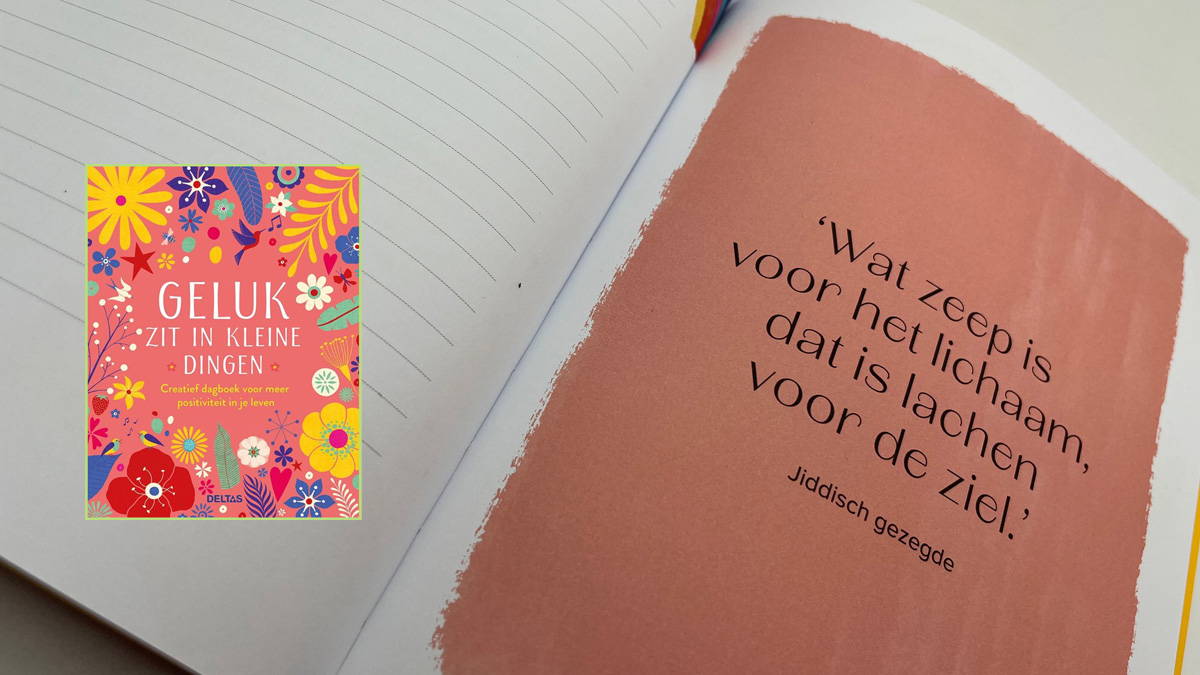 GELUK
ZIT IN KLEINE
DINGEN
Creatief dagboek voor meer
positiviteit in je leven
DELTAS
‘Wat zeep is
voor het lichaam,
dat is lachen
voor de ziel.’
Jiddisch gezegde